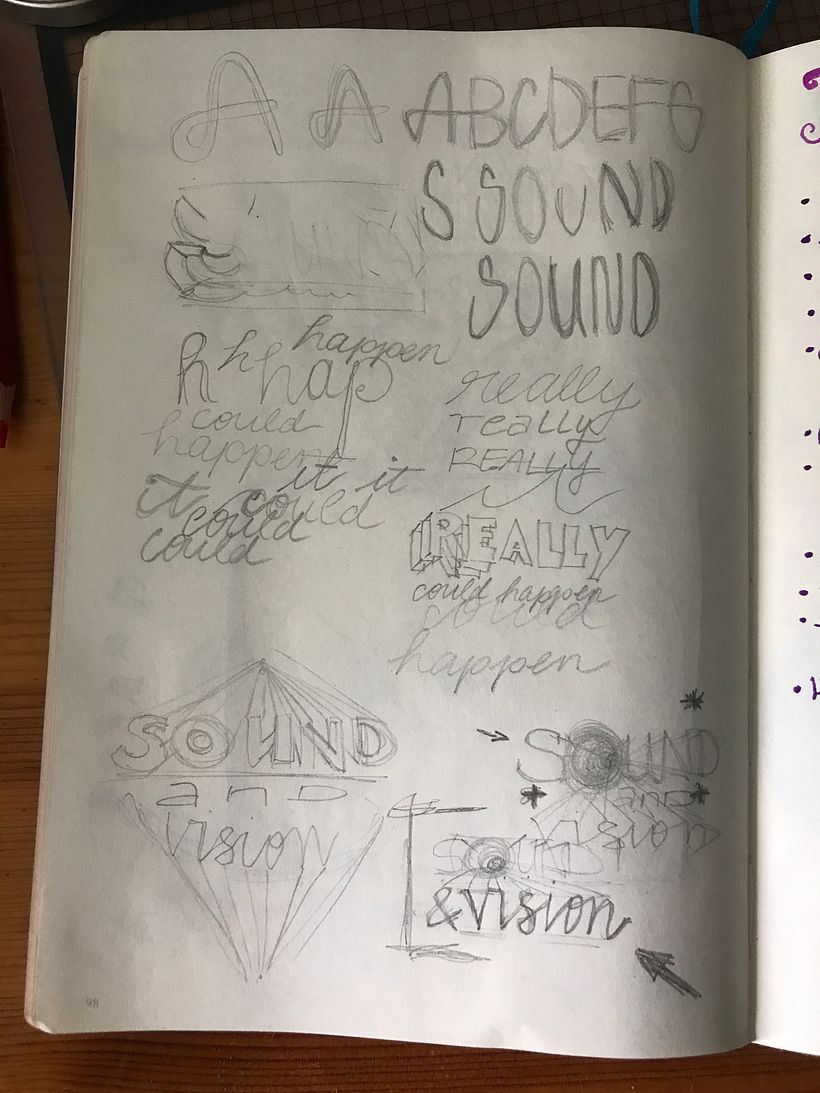 A A ABCDEFG
S SOUND
SOUND
SOUND
happen
h h hap
could
happen
it it
it could
could
could
really
really
REALLY
REALLY
could happen
could
happen
SOUND
and
vision
SOUND
and
vision
SOUND
&vision
98